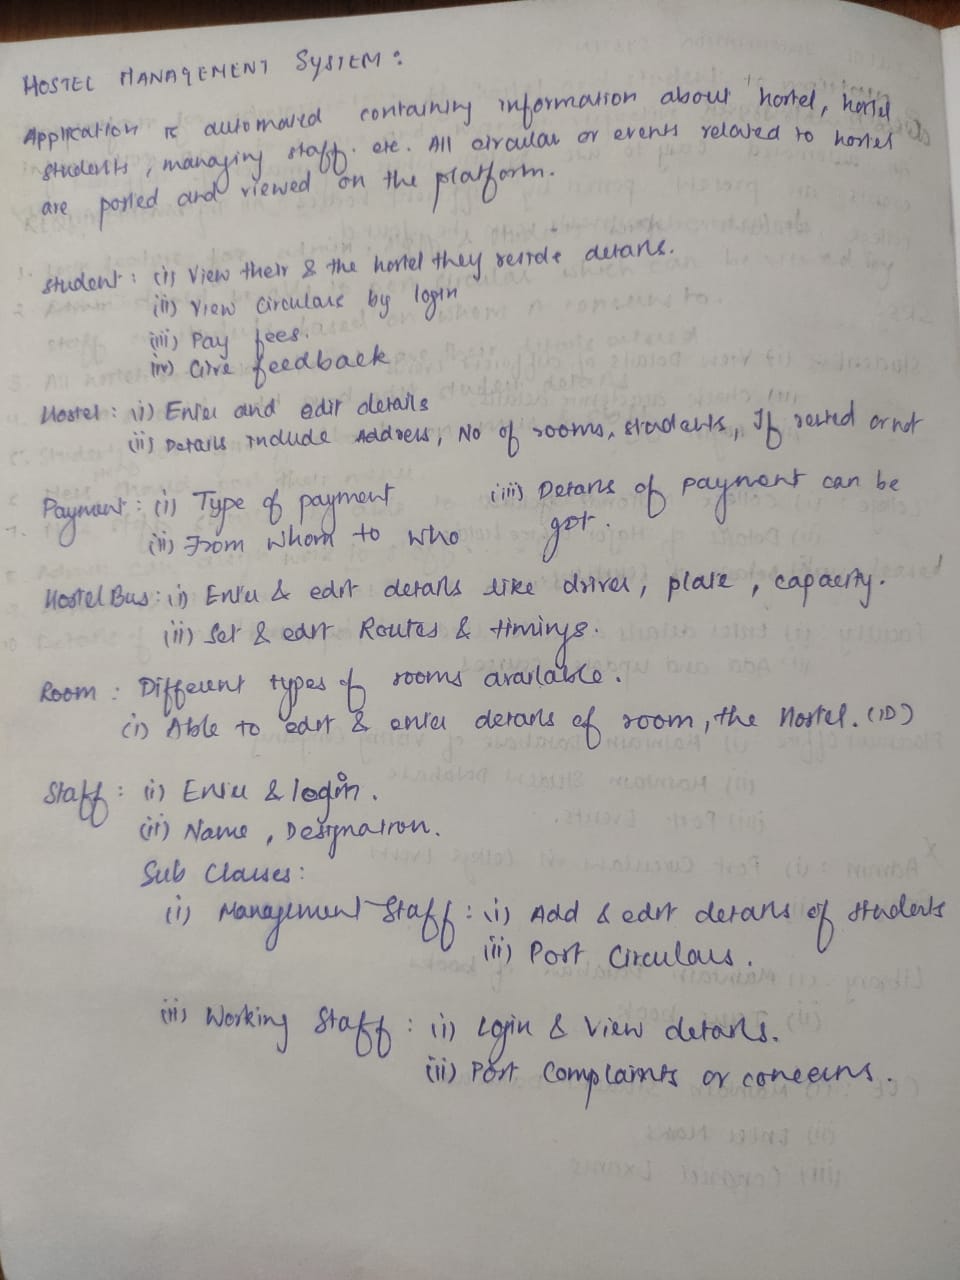 HOSTEL MANAGEMENT SYSTEM:
Application is automated containing information about hostel, hostel
students, managing staff. etc. All circular or events related to hostel
are posted and viewed on the platform.
Student: (i) View their & the hostel they reside details.
(ii) View Circulars by login
(iii) Pay fees.
(iv) Give feedback
Hostel: (i) Enter and edit details
(ii) Details include Address, No of rooms, students, If rented or not
Payment: (i) Type of payment (iii) Details of payment can be
(ii) From whom to who got.
Hostel Bus: (i) Enter & edit details like driver, plate, capacity.
(ii) Set & edit Routes & timings.
Room: Different types of rooms available.
(i) Able to edit & enter details of room, the Hostel. (ID)
Staff: (i) Enter & login.
(ii) Name, Designation.
Sub Classes:
(i) Management Staff: (i) Add & edit details of students
(ii) Post Circulars.
(ii) Working Staff: (i) Login & View details.
(ii) Post Complaints or concerns.